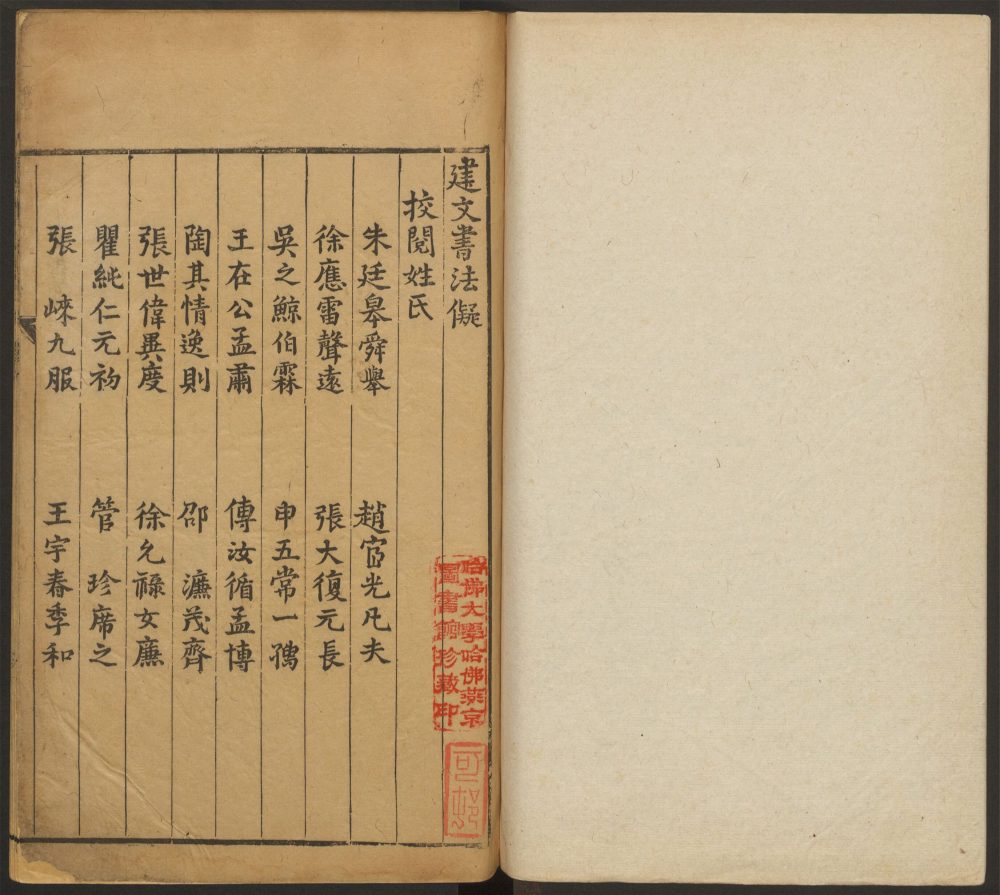 建文書法儗
挍閱姓氏
朱廷臯舜舉　趙宧光凡夫
徐應雷聲遠　張大復元長
吳之鯨伯霖　申五常一
王在公孟肅　傅汝循孟博
陶其情逸則　邵　濂茂齊
張世偉異度　徐允祿女廉
瞿純仁元初　管　珍席之
張　崍九服　王宇春季和
哈佛大學哈佛燕京
圖書館珍藏印